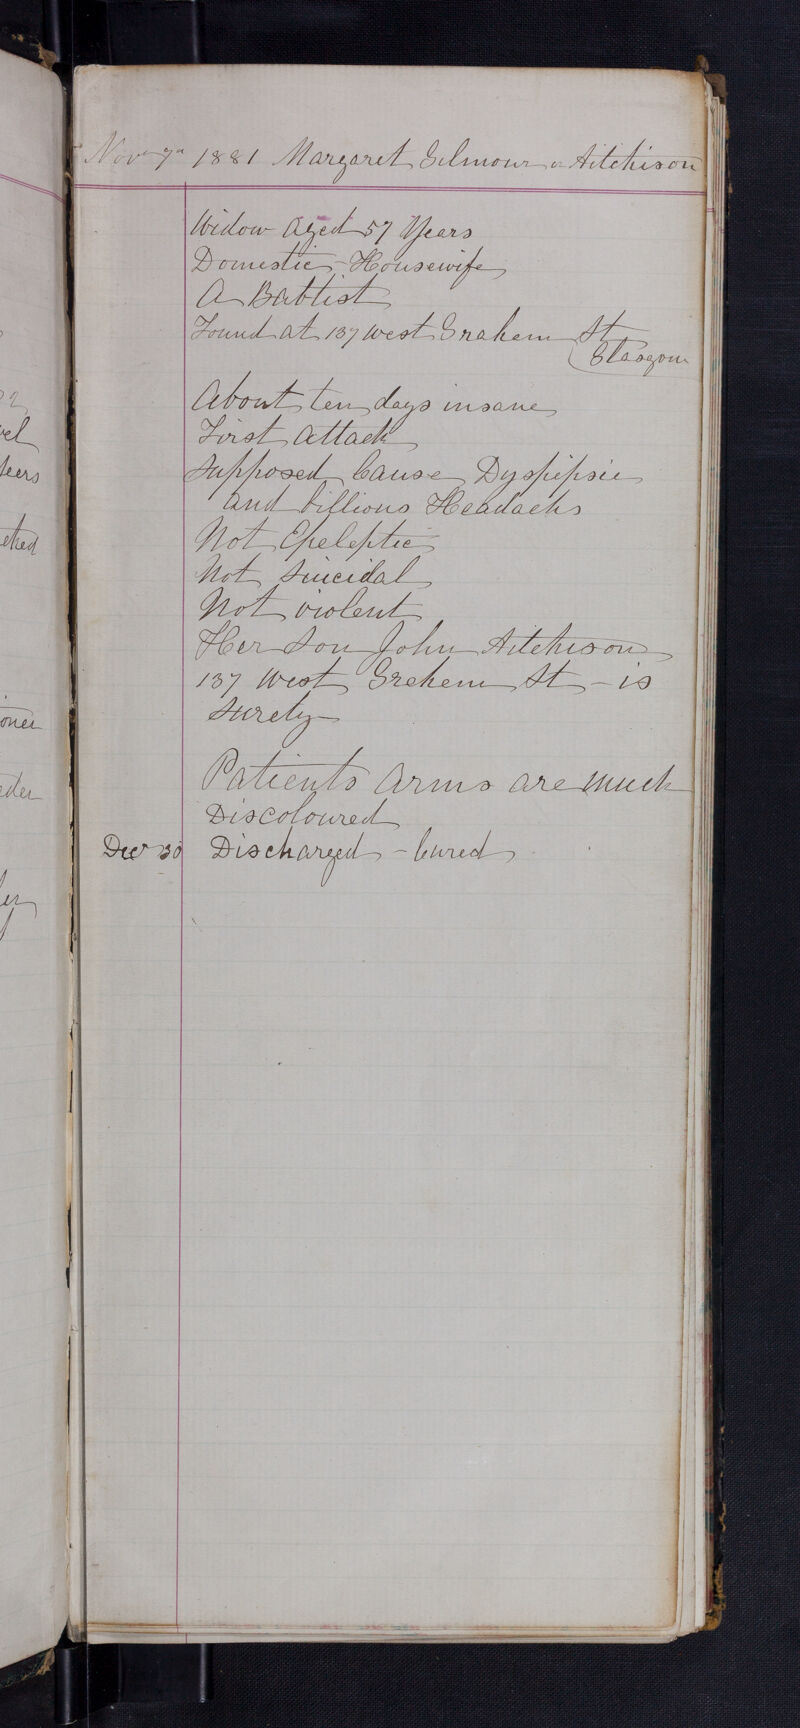 Novr 7th 1881 Margaret Gilmour or Aitchison
Widow aged 57 Years
Domestic - Housewife
A Babtist
Found at 137 West Grahem St
Glasgow
About ten days insane
First Attack
Supposed Cause Dyspipsie
and billious Headachs
Not Epeleptic
Not Suicidal
Not violent
Her Son John Aitchison
137 West Grehem St - is
Surety
Patients arms are much
Discoloured
Decr 30 Discharged - Cured